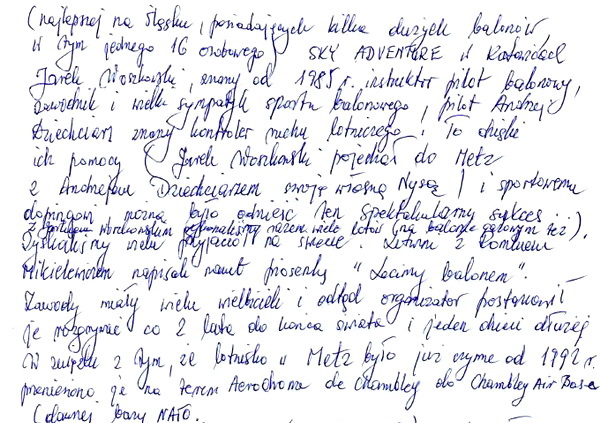 (najlepszej na Śląsku, posiadających kilka dużych balonów,
w tym jednego 16 osobowego) SKY ADVENTURE w Katowicach
Jarek Woszkowski, znany od 1985 r. instruktor pilot balonowy,
zawodnik i wielki sympatyk sportu balonowego, pilot Andrzej
Dziechciarz znany kontroler ruchu lotniczego. To dzięki
ich pomocy (Jarek Woszkowski pojechał do Metz
z Andrzejem Dziechciarzem swoją własną Nysą) i sportowemu
dopingowi można było odnieść ten spektakularny sukces
z Jarkiem Woszkowskim wykonaliśmy razem wiele lotów (na balonie gazowym też).
Zyskaliśmy wielu przyjaciół na świecie. Litwini z Romualdem
Mikielewiczem napisali nawet piosenkę "Lecimy balonem".
Zawody miały wielu wielbicieli i odtąd organizator postanowił
je rozgrywać co 2 lata do końca świata i jeden dzień dłużej
W związku z tym, że lotnisko w Metz było już czynne od 1992 r.
przeniesiono je na teren Aerodromu de Chambley do Chambley Air Base
(dawnej bazy NATO.